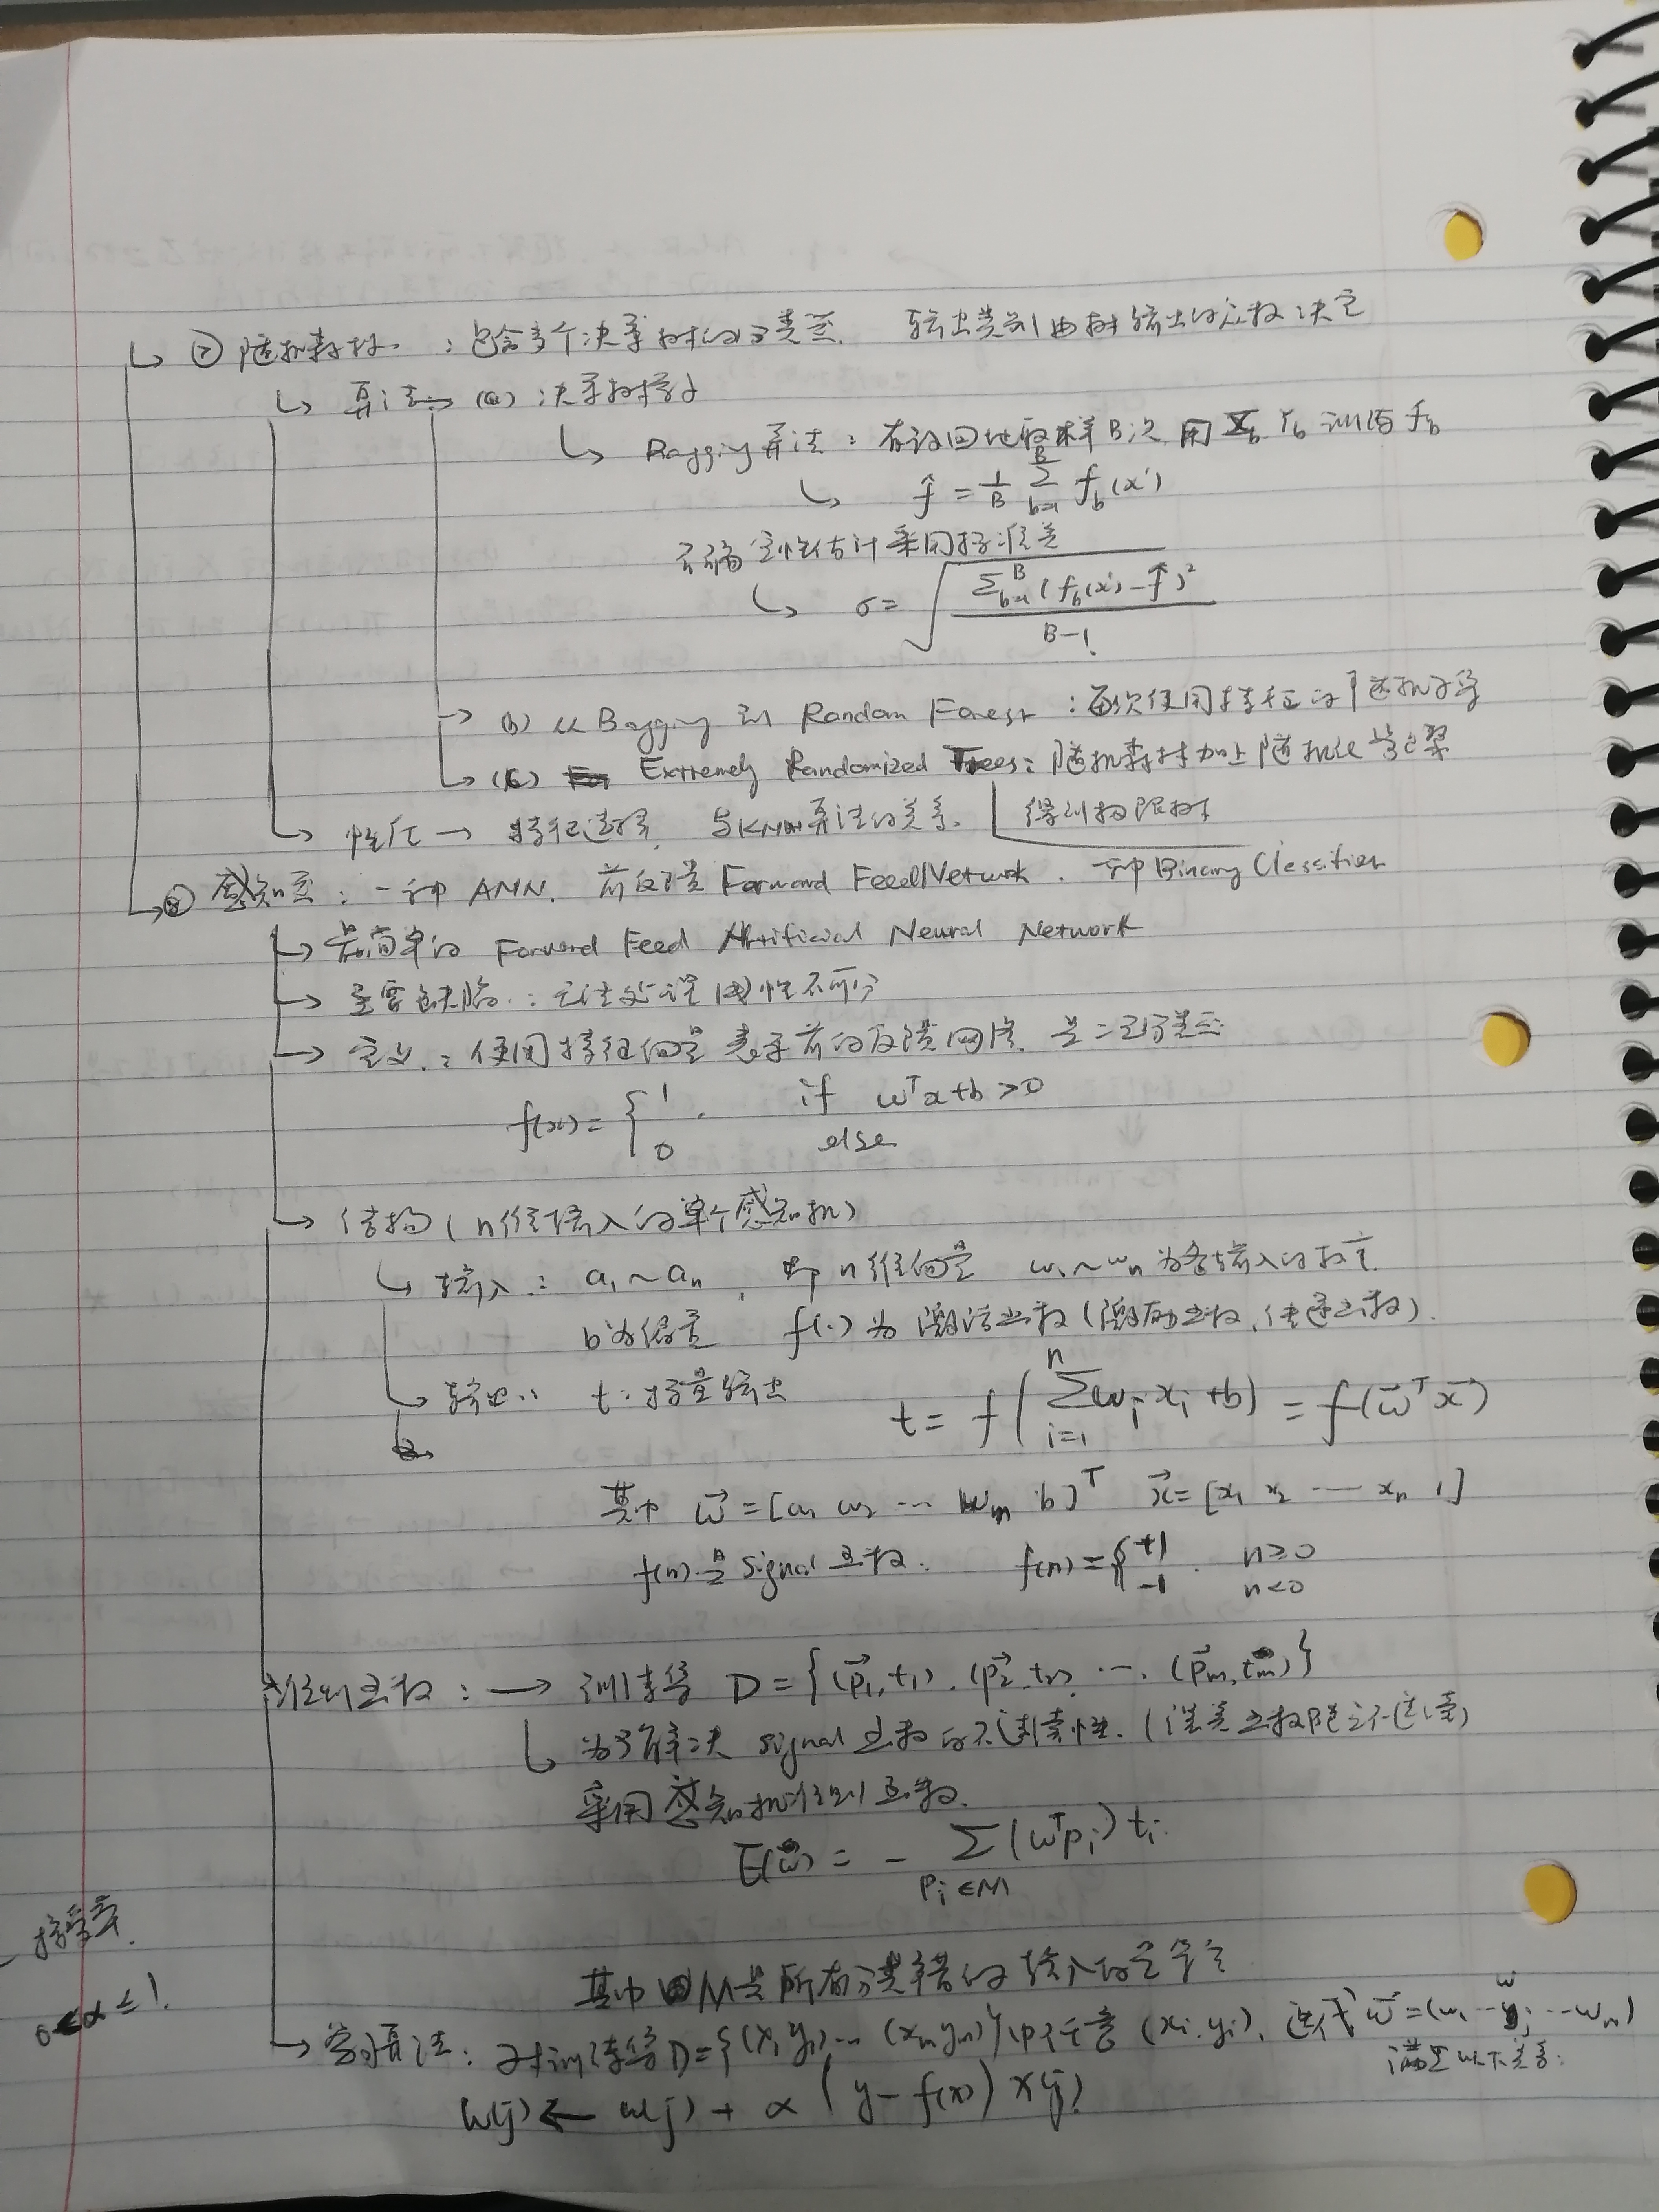 ↳ ⑦ 随机森林 : 包含多个决策树的分类器. 输出类别由树输出的众数决定
↳ 算法 → (a) : 决策树学习
↳ Bagging算法 : 有放回地取样B次 用 X_b Y_b 训练 f_b
↳ f̂ = 1/B Σ_{b=1}^{B} f_b(x')
不确定性估计采用标准差
↳ σ = √( Σ_{b=1}^{B} (f_b(x') - f̂)² / (B-1) )
→ (b) 从 Bagging 到 Random Forest : 每次使用特征的随机子集
↳ (c) Extremely Randomized Trees : 随机森林加上随机化
得到极限树
↳ 性质 → 特征选择, 与KNN算法的关系.
↳ ⑧ 感知器 : 一种 ANN. 前反馈 Forward Feed Network. 一种 Binary Classifier
↳ 最简单的 Forward Feed Artificial Neural Network
→ 主要缺陷 : 无法处理线性不可分
→ 定义 : 使用特征向量表示前的反馈网络. 是二元分类器
f(x) = { 1, if ω^T x + b > 0
0 else
↳ 结构 ( n维输入的单个感知机 )
↳ 输入 : a₁ ~ a_n , 即 n 维向量 ω₁ ~ ω_n 为各输入的权重
b 为偏置 f(.) 为 激活函数 (激励函数, 传递函数).
↳ 输出 : t : 标量输出
t = f ( Σ_{i=1}^{n} ω_i x_i + b ) = f(ω⃗^T x⃗)
其中 ω⃗ = [ω₁ ω₂ ··· ω_n b]^T x⃗ = [x₁ x₂ ··· x_n 1]
f(n) 是 signal 函数. f(n) = { +1 n ≥ 0
-1 n < 0
准则函数 : → 训练集 D = {(p⃗₁, t₁), (p⃗₂, t₂), ···, (p⃗_m, t_m)}
↳ 为了解决 signal 函数的不连续性. (误差函数随之不连续)
采用感知机准则函数.
E(ω⃗) = - Σ_{p_i ∈ M} (ω^T p_i) t_i
其中 M是所有分类错的输入的
↳ 学习算法 : 对训练集 D = {(x₁ y₁) ··· (x_m y_m)} 中任意 (x_i, y_i), 迭代 ω⃗ = (ω₁ ··· ω_j ··· ω_n)
满足以下关系:
w(j) ← w(j) + α ( y - f(x) ) x(j)
学习率.
0 < α ≤ 1.